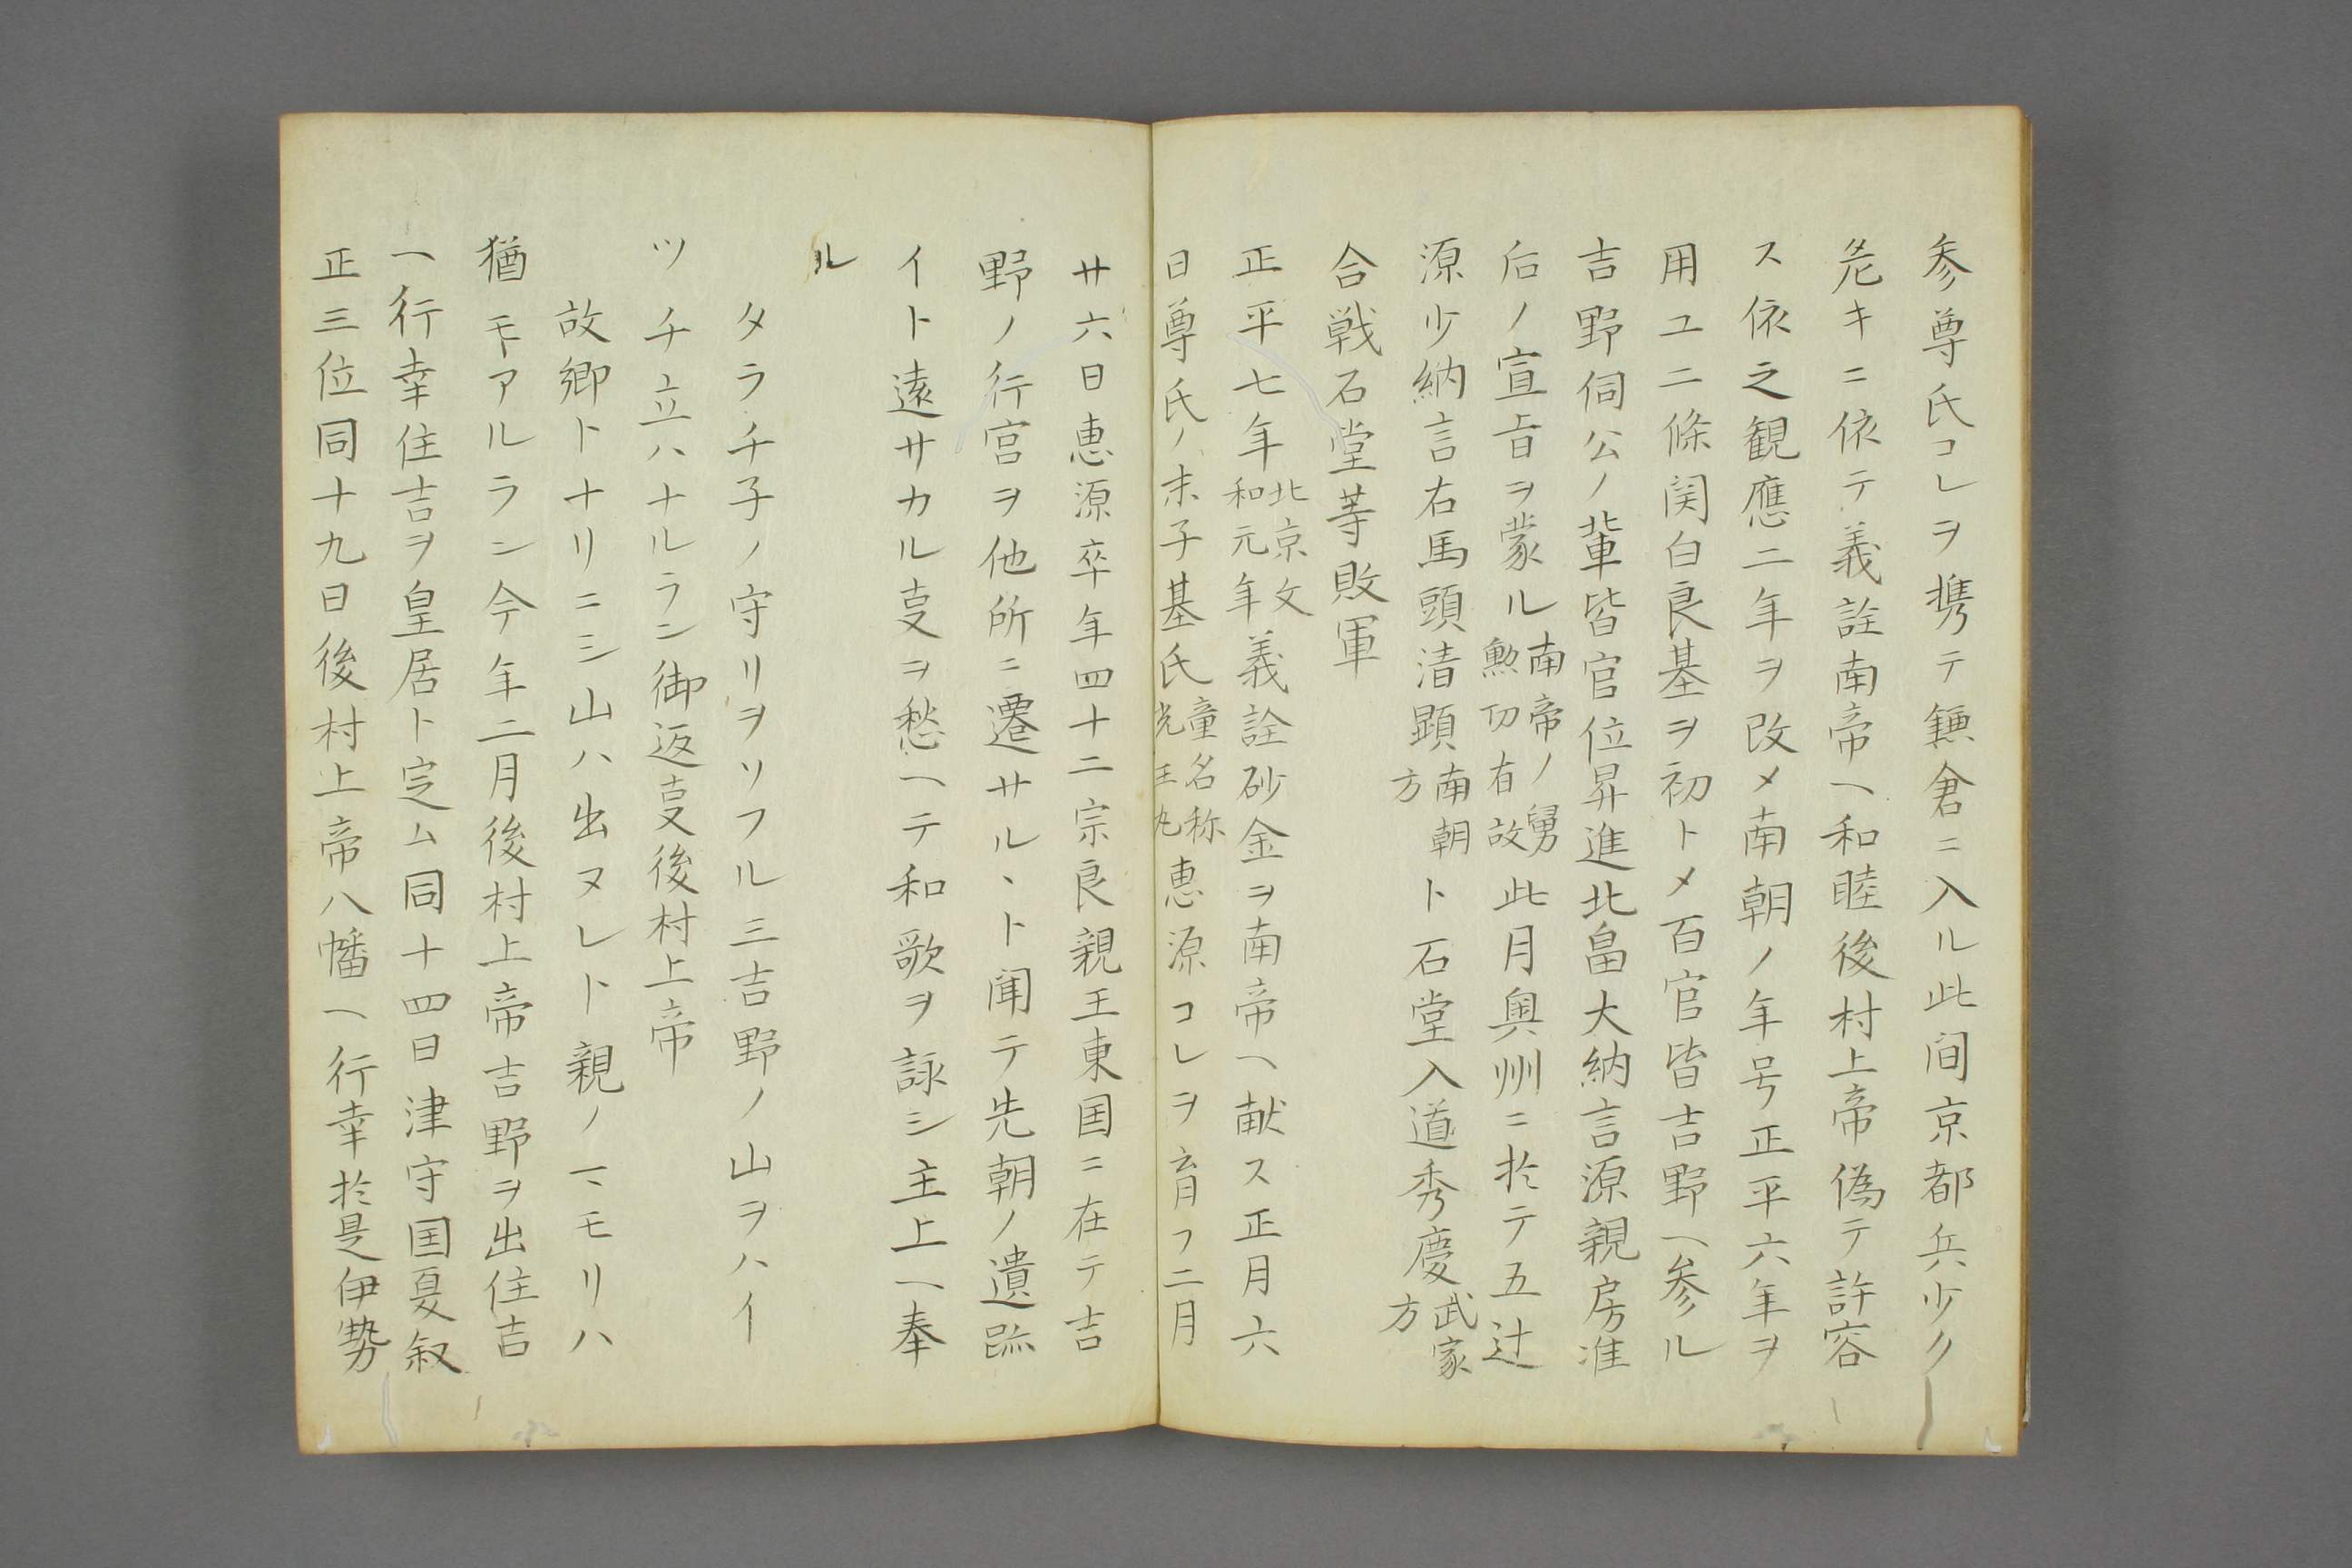 参尊氏コレヲ携テ鎌倉ニ入ル此间京都兵少ク
危キニ依テ義詮南帝ヘ和睦後村上帝偽テ許容
ス依之観應二年ヲ改メ南朝ノ年号正平六年ヲ
用ユ二條関白良基ヲ初トメ百官皆吉野ヘ参ル
吉野伺公ノ輩皆官位昇進北畠大納言源親房准
后ノ宣旨ヲ蒙ル南帝ノ舅勲功有故此月奥州ニ於テ五辻
源少納言右馬頭清顕南朝方ト石堂入道秀慶武家方
合戦石堂等敗軍
正平七年北京文和元年義詮砂金ヲ南帝ヘ献ス正月六
日尊氏ノ末子基氏童名称光王丸恵源コレヲ育フ二月
廿六日恵源卒年四十二宗良親王東国ニ在テ吉
野ノ行宮ヲ他所ニ遷サルヽト聞テ先朝ノ遺跡
イト遠サカル叓ヲ愁ヘテ和歌ヲ詠シ主上ヘ奉
ル
タラチ子ノ守リヲソフル三吉野ノ山ヲハイ
ツチ立ハナルラン御返叓後村上帝
故郷トナリニシ山ハ出ヌレト親ノマモリハ
猶モアルラン今年二月後村上帝吉野ヲ出住吉
ヘ行幸住吉ヲ皇居ト定ム同十四日津守国夏叙
正三位同十九日後村上帝八幡ヘ行幸於是伊勢